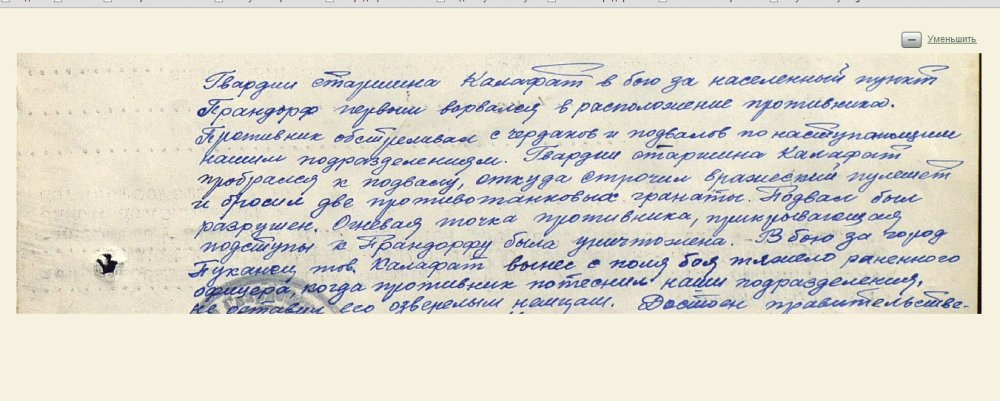 Уменьшить
Гвардии старшина Калафат в бою за населенный пункт
Прандорф первым ворвался в расположение противника.
Противник обстреливал с чердаков и подвалов по наступающим
нашим подразделениям. Гвардии старшина Калафат
пробрался к подвалу, откуда строчил вражеский пулемет
и бросил две противотанковых гранаты. Подвал был
разрушен. Огневая точка противника, прикрывающая
подступы к Прандорфу была уничтожена. В бою за город
Пуканец тов. Калафат вынес с поля боя тяжело раненного
офицера, когда противник потеснил наши подразделения,
не оставил его озверелым немцам. Достоен правительстве-